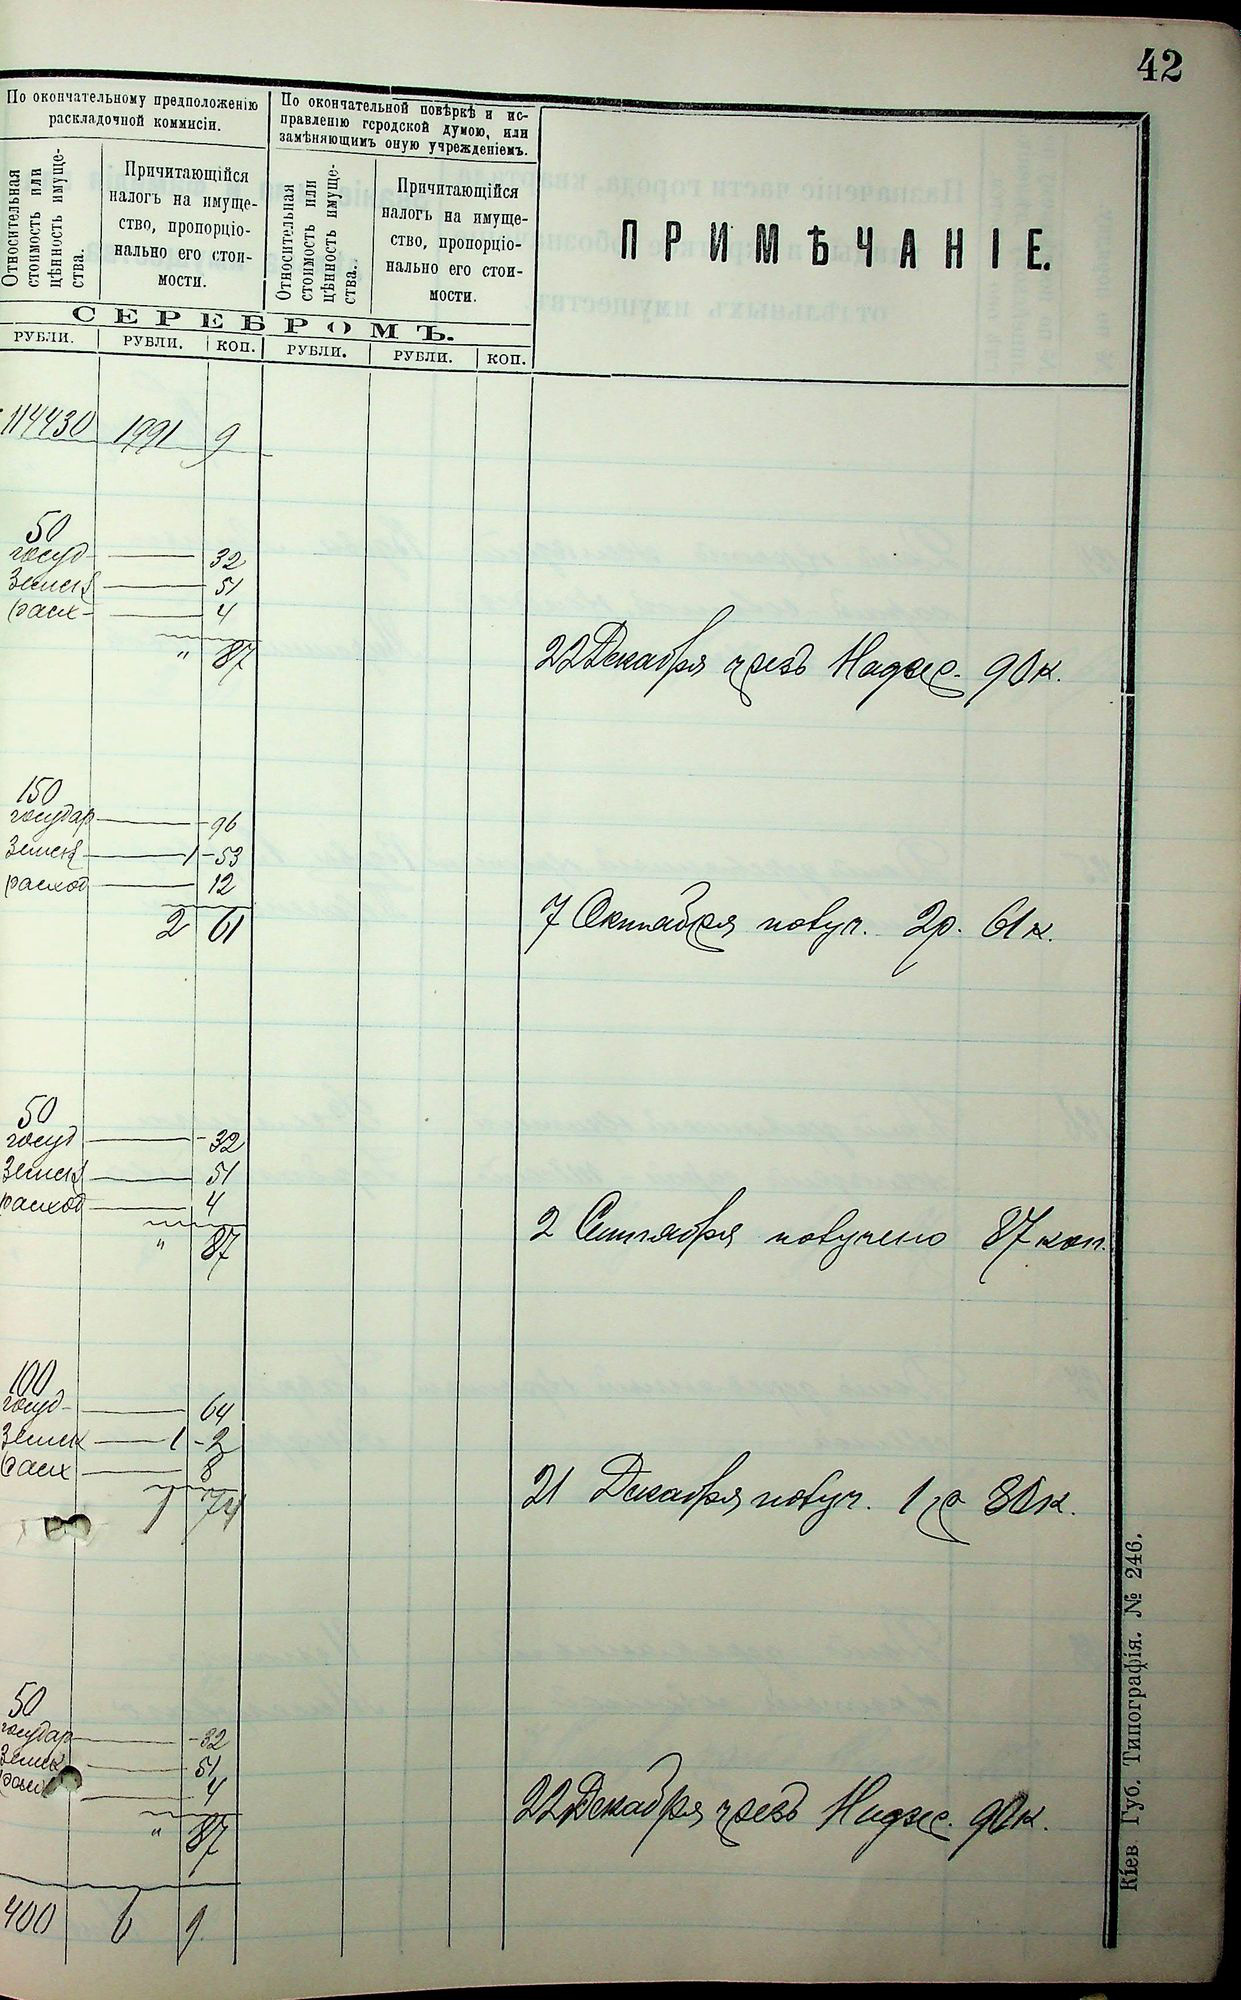 42
По окончательному предположенію
раскладочной коммисіи.
По окончательной повѣркѣ и ис-
правленію городской думою, или
замѣняющимъ оную учрежденіемъ.
Относительная
стоимость или
цѣнность имуще-
ства.
Причитающійся
налогъ на имуще-
ство, пропорціо-
нально его стои-
мости.
Относительная
стоимость или
цѣнность имуще-
ства.
Причитающійся
налогъ на имуще-
ство, пропорціо-
нально его стои-
мости.
ПРИМѢЧАНІЕ.
СЕРЕБРОМЪ.
РУБЛИ. РУБЛИ. КОП. РУБЛИ. РУБЛИ. КОП.
114430 1991 9
50
госуд 32
Земск 51
расх 4
" 87 22 Декабря чрезъ Надзс. 90 к.
150
государ 96
Земск 1 53
расход 12
2 61 7 Октября получ. 2 р. 61 к.
50
госуд 32
Земск 51
расход 4
" 87 2 Сентября получено 87 коп.
100
госуд 64
Земск 1 2
расх 8
1 74 21 Декабря получ. 1 р 80 к.
50
государ 32
Земск 51
расх 4
" 87 22 Декабря чрезъ Надзс. 90 к.
400 6 9
Кіев. Губ. Типографія. № 246.